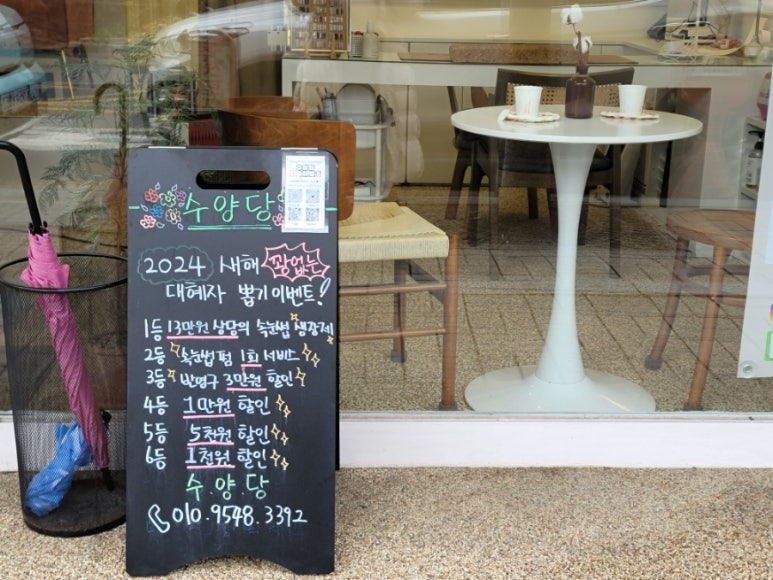 수양당
2024 새해 꽝없는
대혜자 뽑기 이벤트!
1등 13만원 상당의 속눈썹 생장제
2등 속눈썹 펌 1회 서비스
3등 반영구 3만원 할인
4등 1만원 할인
5등 5천원 할인
6등 1천원 할인
수.양.당
010.9548.3392